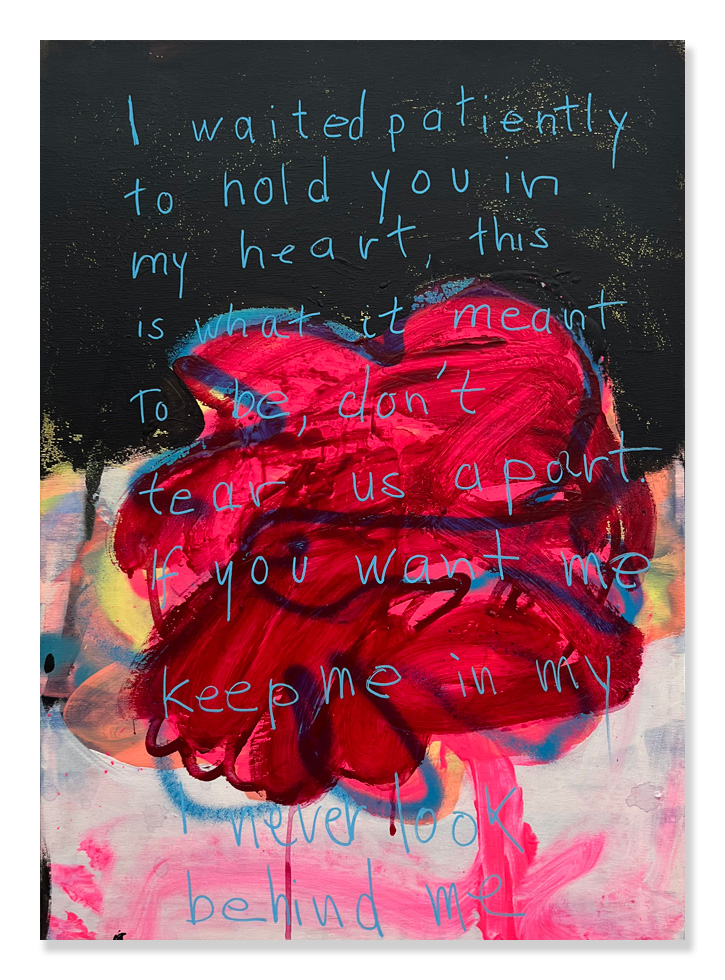 I waited patiently
to hold you in
my heart, this
is what it meant
To be, don't
tear us apart
If you want me
keep me in my
I never look
behind me